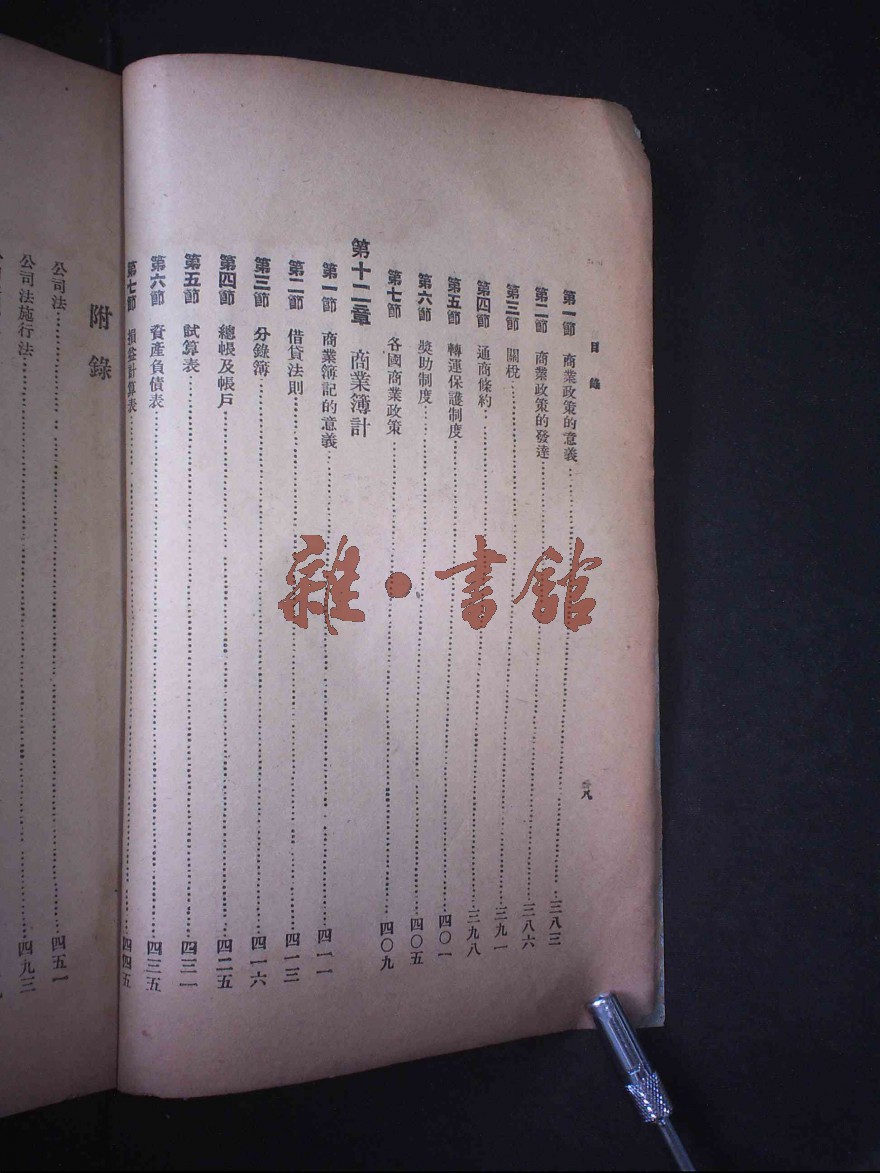 目錄
第一節 商業政策的意義……三八三
第二節 商業政策的發達……三八六
第三節 關稅……三九一
第四節 通商條約……三九八
第五節 轉運保護制度……四〇一
第六節 獎助制度……四〇五
第七節 各國商業政策……四〇九
第十二章 商業簿計
第一節 商業簿記的意義……四一一
第二節 借貸法則……四一三
第三節 分錄簿……四一六
第四節 總帳及帳戶……四二五
第五節 試算表……四三一
第六節 資產負債表……四三五
第七節 損益計算表……四四五
附錄
公司法……四五一
公司法施行法……四九三
雜·書館